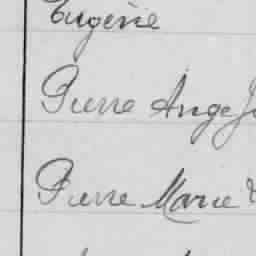 Eugénie
Pierre Ange
Pierre Marie